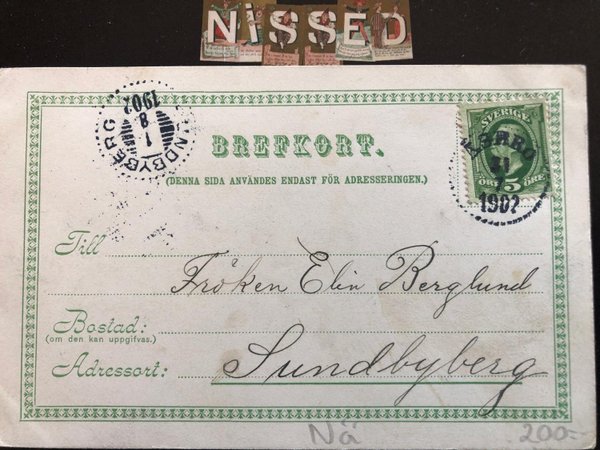 NiSSED
SUNDBYBERG
1
8
1902
BREFKORT.
(DENNA SIDA ANVÄNDES ENDAST FÖR ADRESSERINGEN.)
SVERIGE
31
7
1902
5 ÖRE
Till Fröken Elin Berglund
Bostad:
(om den kan uppgifvas.)
Adressort: Sundbyberg
Nä 200:-